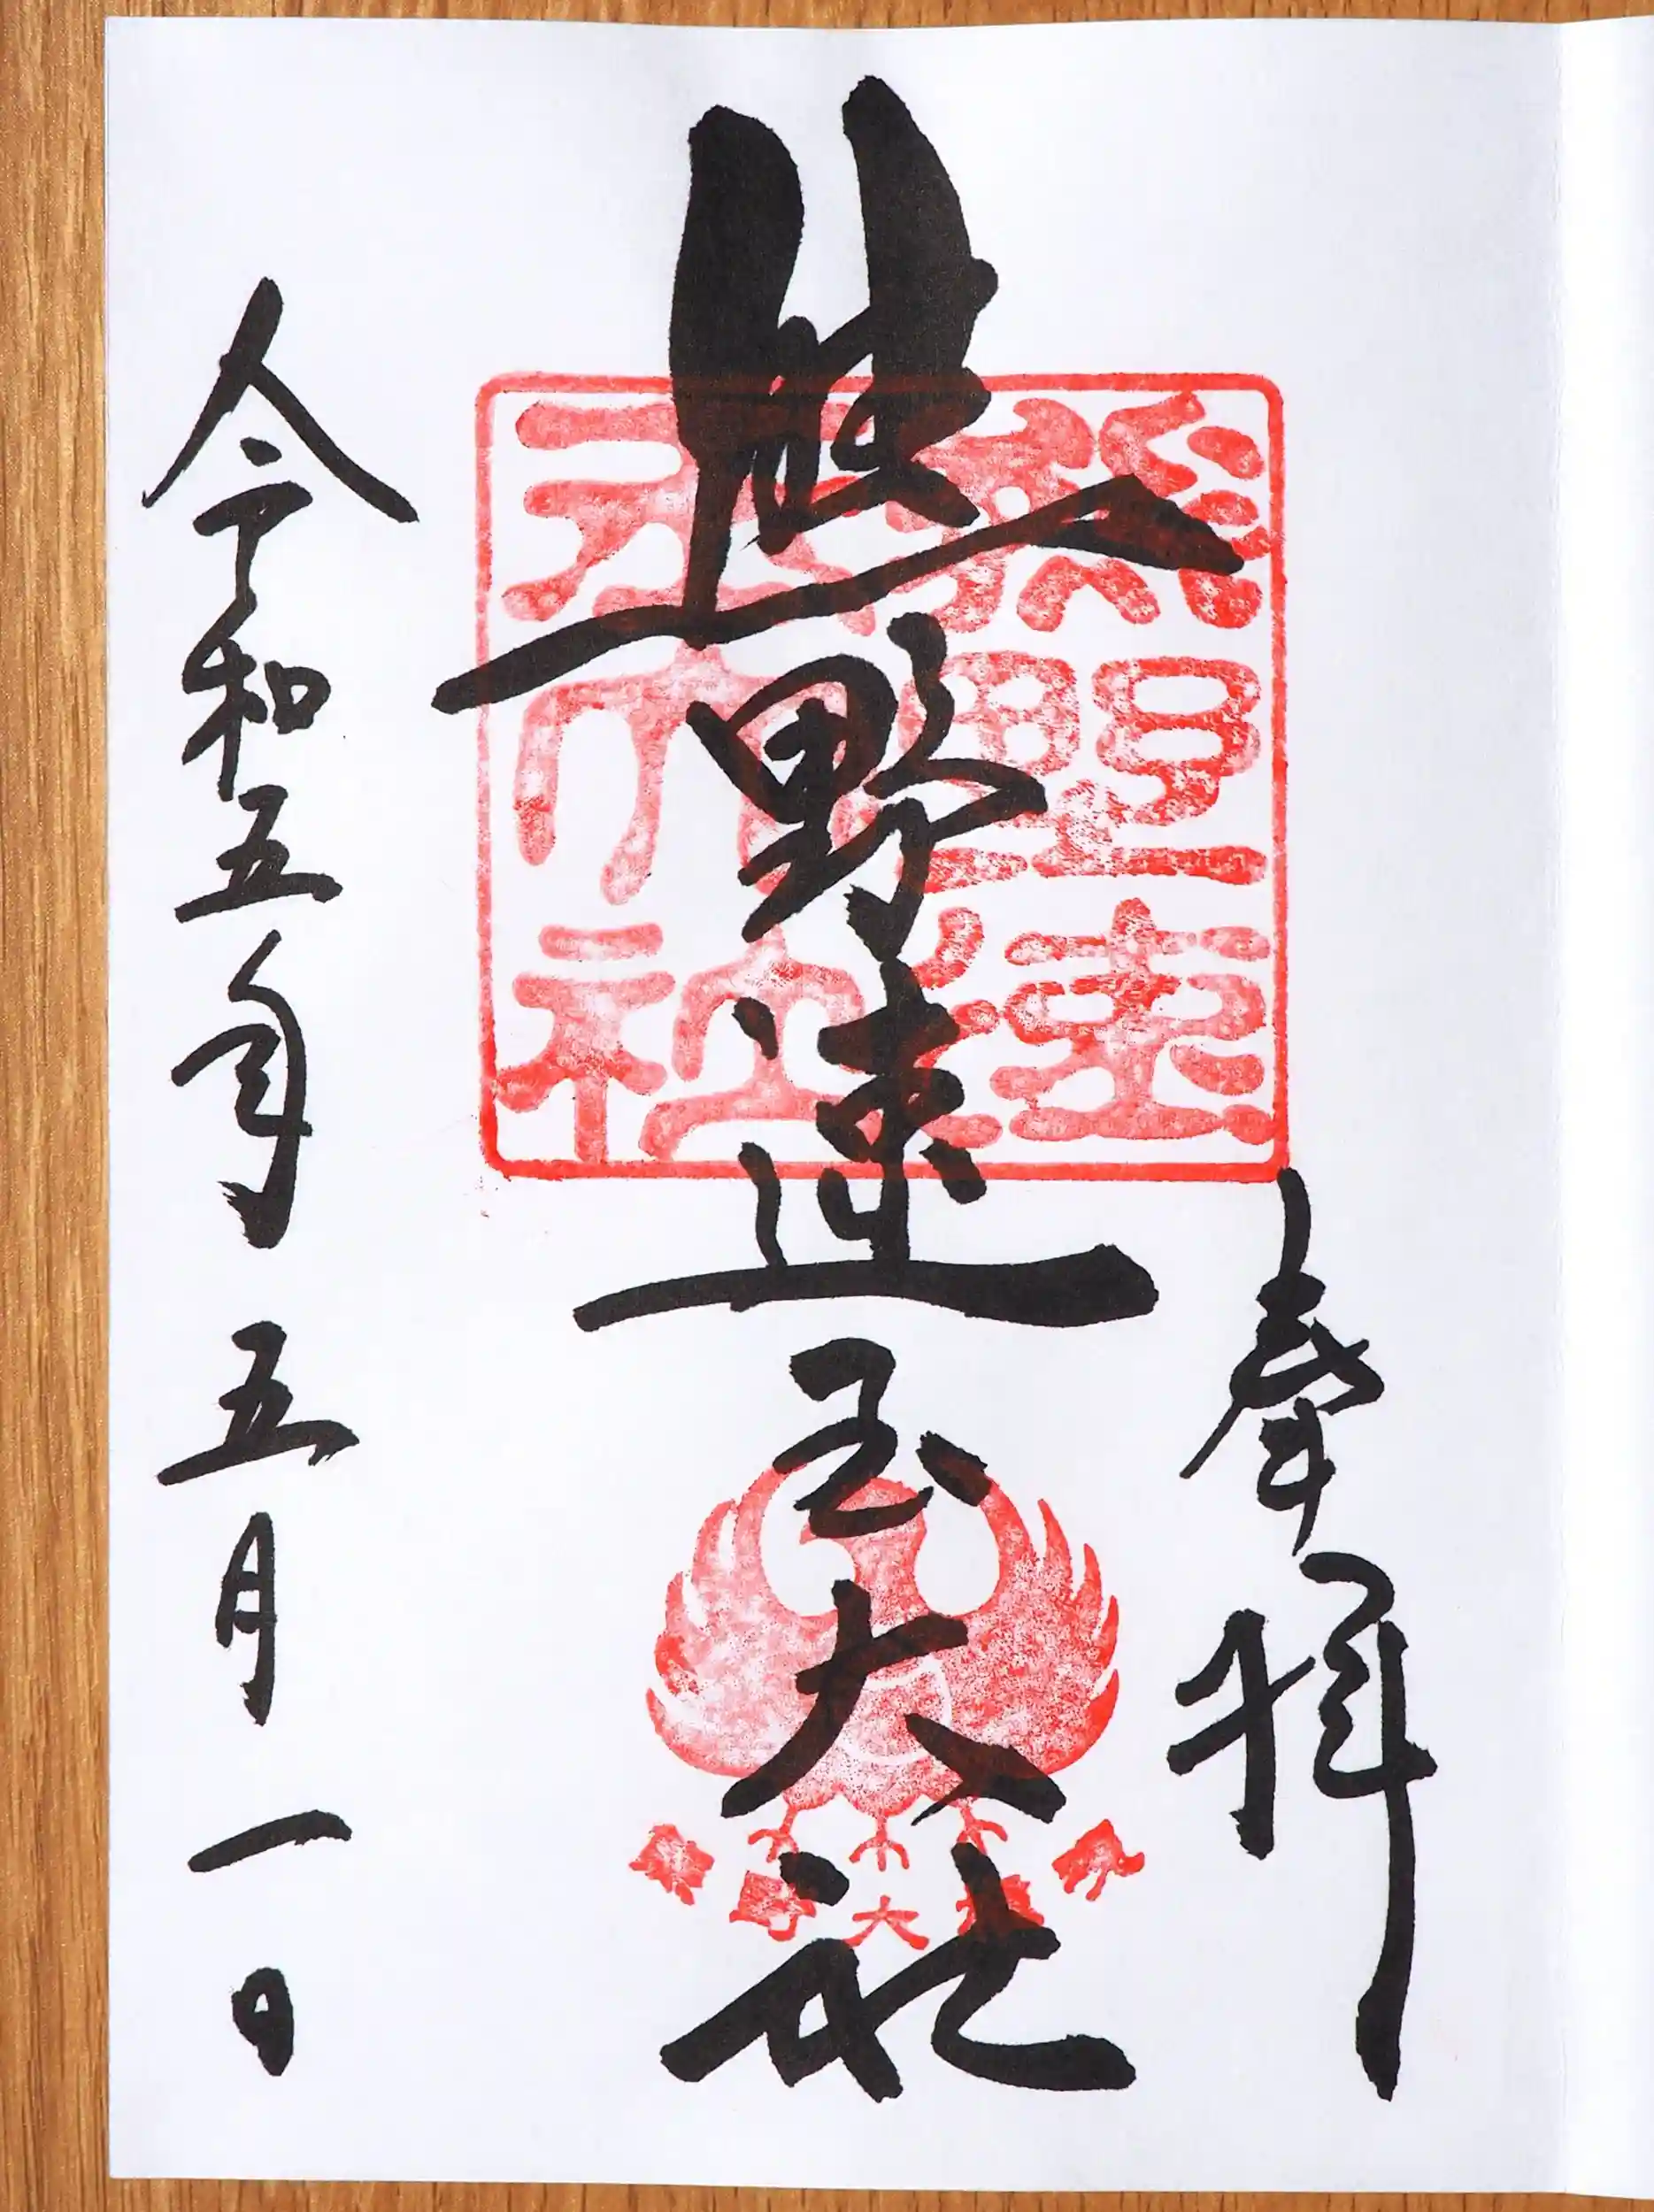 奉拝
熊野速玉大社
令和五年五月一日
熊野速
玉大社
熊野大権現